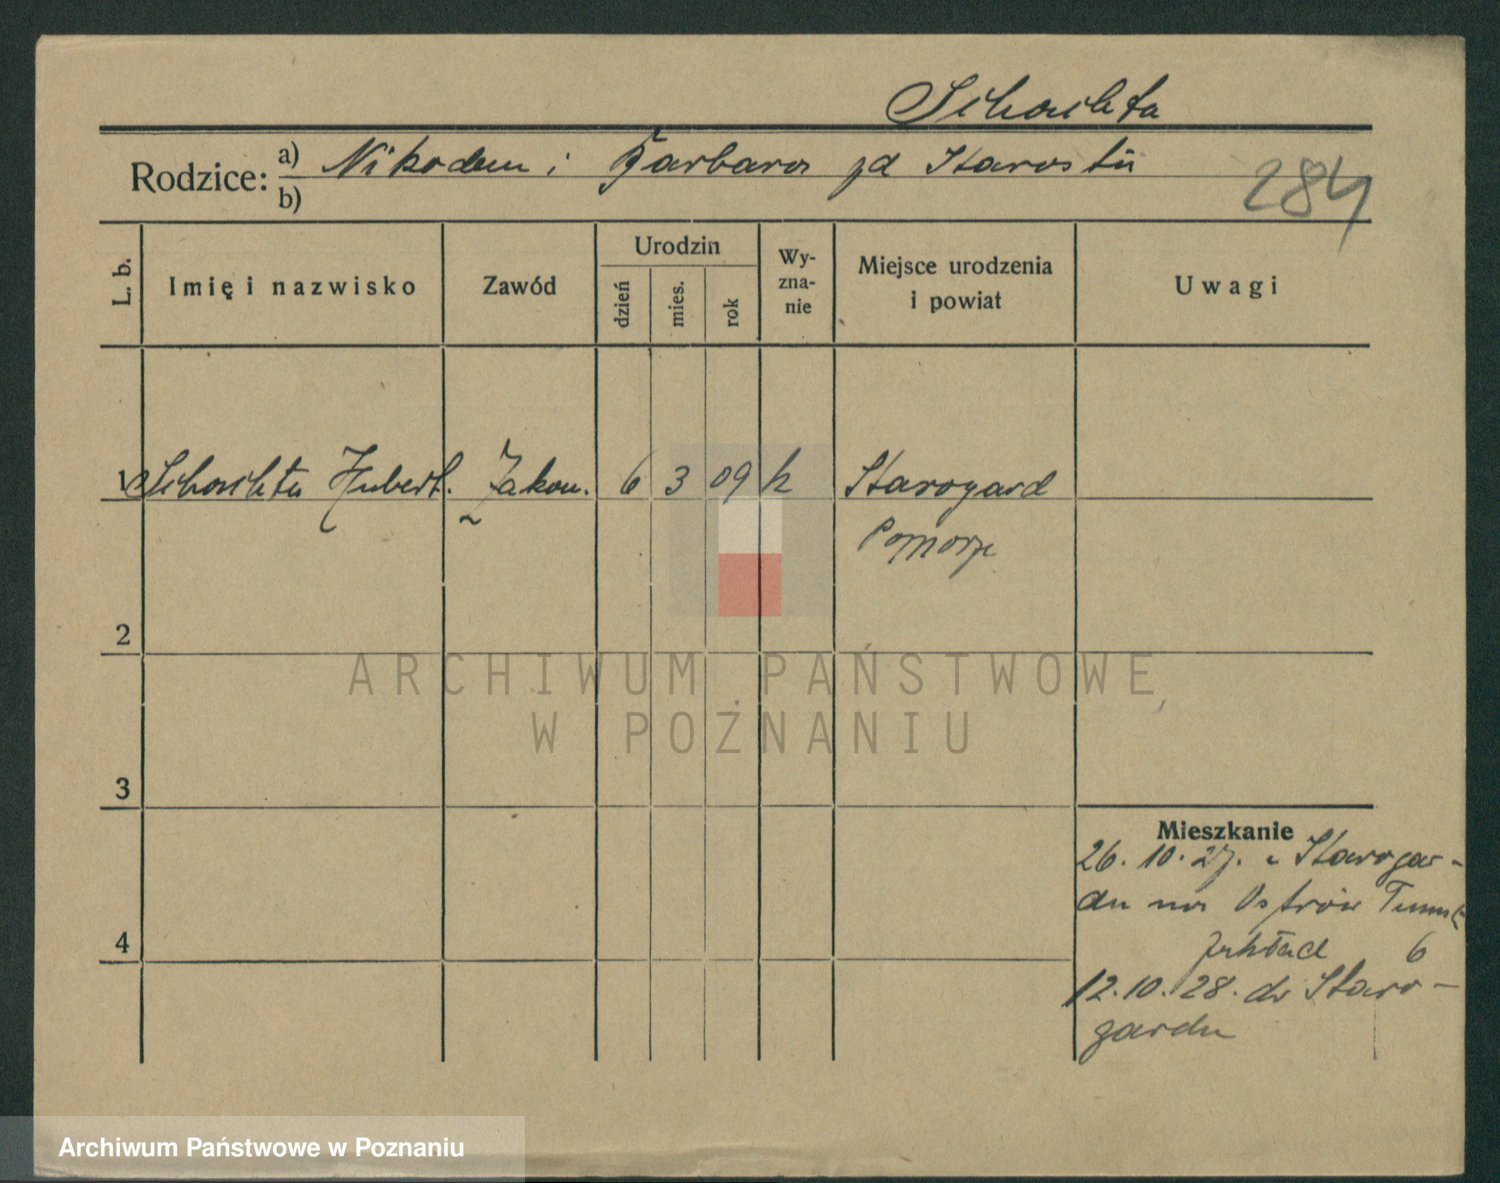 Schachta
Rodzice: a) Nikodem i Barbara zd Starosta
b)
284
L. b. Imię i nazwisko Zawód Urodzin dzień mies. rok Wy-zna-nie Miejsce urodzenia i powiat Uwagi
1 Schachta Hubert. Zakon. 6 3 09 k Starogard
Pomorze
2
ARCHIWUM PAŃSTWOWE
W POZNANIU
3
Mieszkanie
26. 10. 27. z Starogar-
du na Ostrów Tumski
zakład 6
4
12. 10. 28. do Staro-
gardu
Archiwum Państwowe w Poznaniu